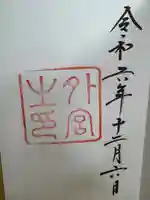 令和六年十二月六日
外宮之印